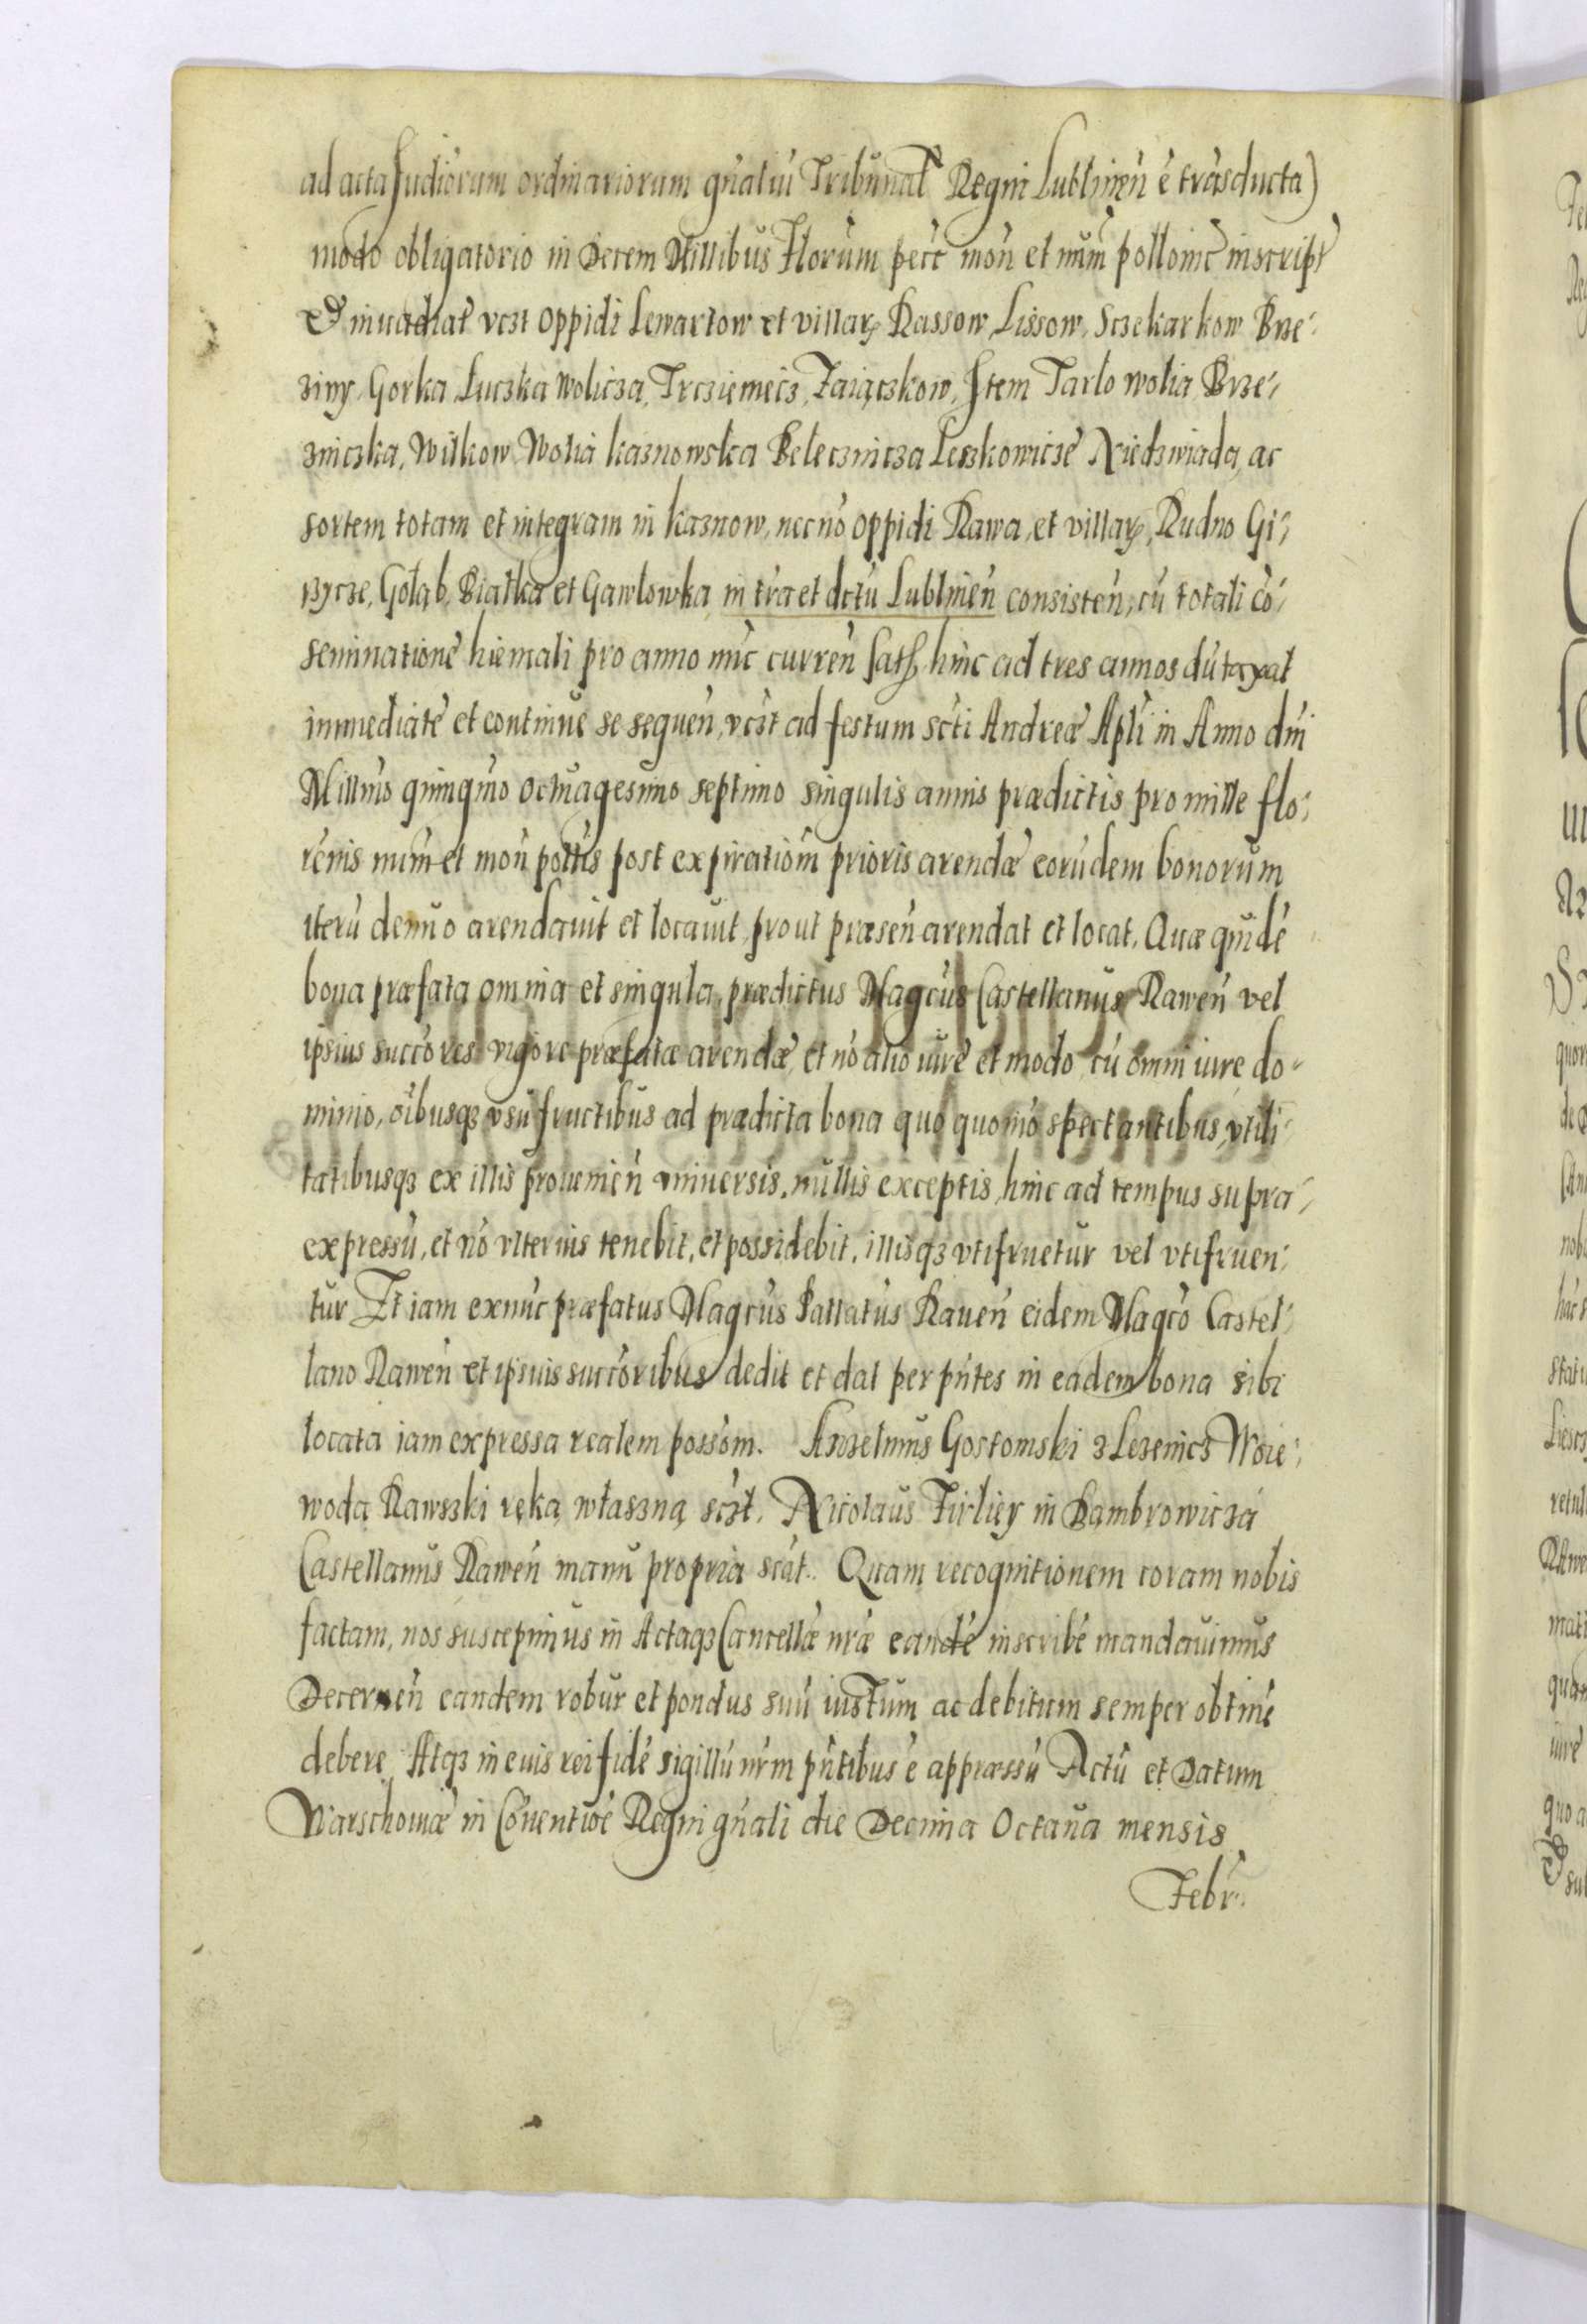 ad acta Judiciorum ordinariorum gñaliũ Tribunal Regni Lublineñ ẽ trãsducta)
modo obligatorio in Decem Millibus Florum pecc moñ et num̃ pollonic inscript
Et inuadiat vczt oppidi Lewartow et villarꝝ Rassow Lissow, Sczekarkow Brze-
ziny, Gorka Luczka Wolicza, Trcziemiecz, Zaiączkow, Item Tarlo wolia Brze-
zniczka, Wilkow Wolia kaznowska Belecznicza Leszkowicze Niedzwiada, ac
sortem totam et integram in kaznow, necnõ oppidi Rawa, et villarꝝ, Rudno Gi-
życze, Gołąb, Białka et Gawlowka, in tr̃a et dctũ Lublineñ consisteñ, cũ totali cõ-
seminationẽ hiemali pro anno nũc curreñ sat, hinc ad tres annos dũtaxat
immediatẽ et continuẽ se sequeñ, vczt ad festum scti Andreæ Apl̃i in Anno dñi
Millm̃o quingm̃o octuagesimo septimo singulis annis prædictis pro mille flo-
rẽnis num̃ et moñ pollis post expiratiom̃ prioris arendæ eorũdem bonorum
iterũ denuo arendauit et locauit, prout præseñ arendat et locat. Quæ quidẽ
bona præfata omnia et singula, prædictus Magcũs Castellanus Raweñ vel
ipsius succõres vigore præfatæ arendæ, et nõ alio iure et modo, cũ omni iure do-
minio, oĩbusqꝫ vsufructibus ad prædicta bona quo quomõ spectantibus, vtili-
tatibusqꝫ ex illis prouenieñ vniuersis, nullis exceptis, hinc ad tempus supra-
expressũ, et nõ vlterius tenebit, et possidebit, illisqꝫ vtifruetur vel vtifruen-
tur Et iam exnũc præfatus Magcũs Pallatũs Raueñ eidem Magcõ Castel-
lano Raweñ et ipsius succõribus dedit et dat per pñtes in eadem bona sibi
locata iam expressa realem possom̃. Anzelmus Gostomski z Lezenicz Woie-
woda Rawszki ręką właszną sczt. Nicolaus Firliey in Dambrowicza
Castellanus Raweñ manu propria scãt. Quam recognitionem coram nobis
factam, nos suscepimus in Actaqꝫ Cancellæ nr̃æ eandẽ inscribẽ mandauimus
Decerneñ eandem robur et pondus suũ iustum ac debitum semper obtinẽ
debere, Atqꝫ in euis rei fidẽ sigillũ nr̃m pñtibus ẽ appræssũ Actũ et Datum
Warschouiæ in Cõuentiõẽ Regni gñali die Decima Octaua mensis
Febr: